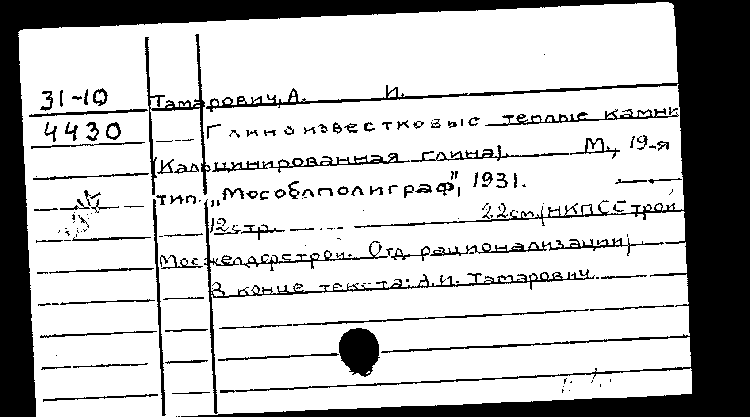 31-10
Тамарович, А. И.
4430
Глиноизвестковые теплые камни
(Кальцинированная глина). М., 19-я
тип. „Мособлполиграф", 1931.
12 стр. 22 см. (НКПС Строй
Мосжелдорстрой. Отд. рационализации)
В конце текста: А.И. Тамарович.